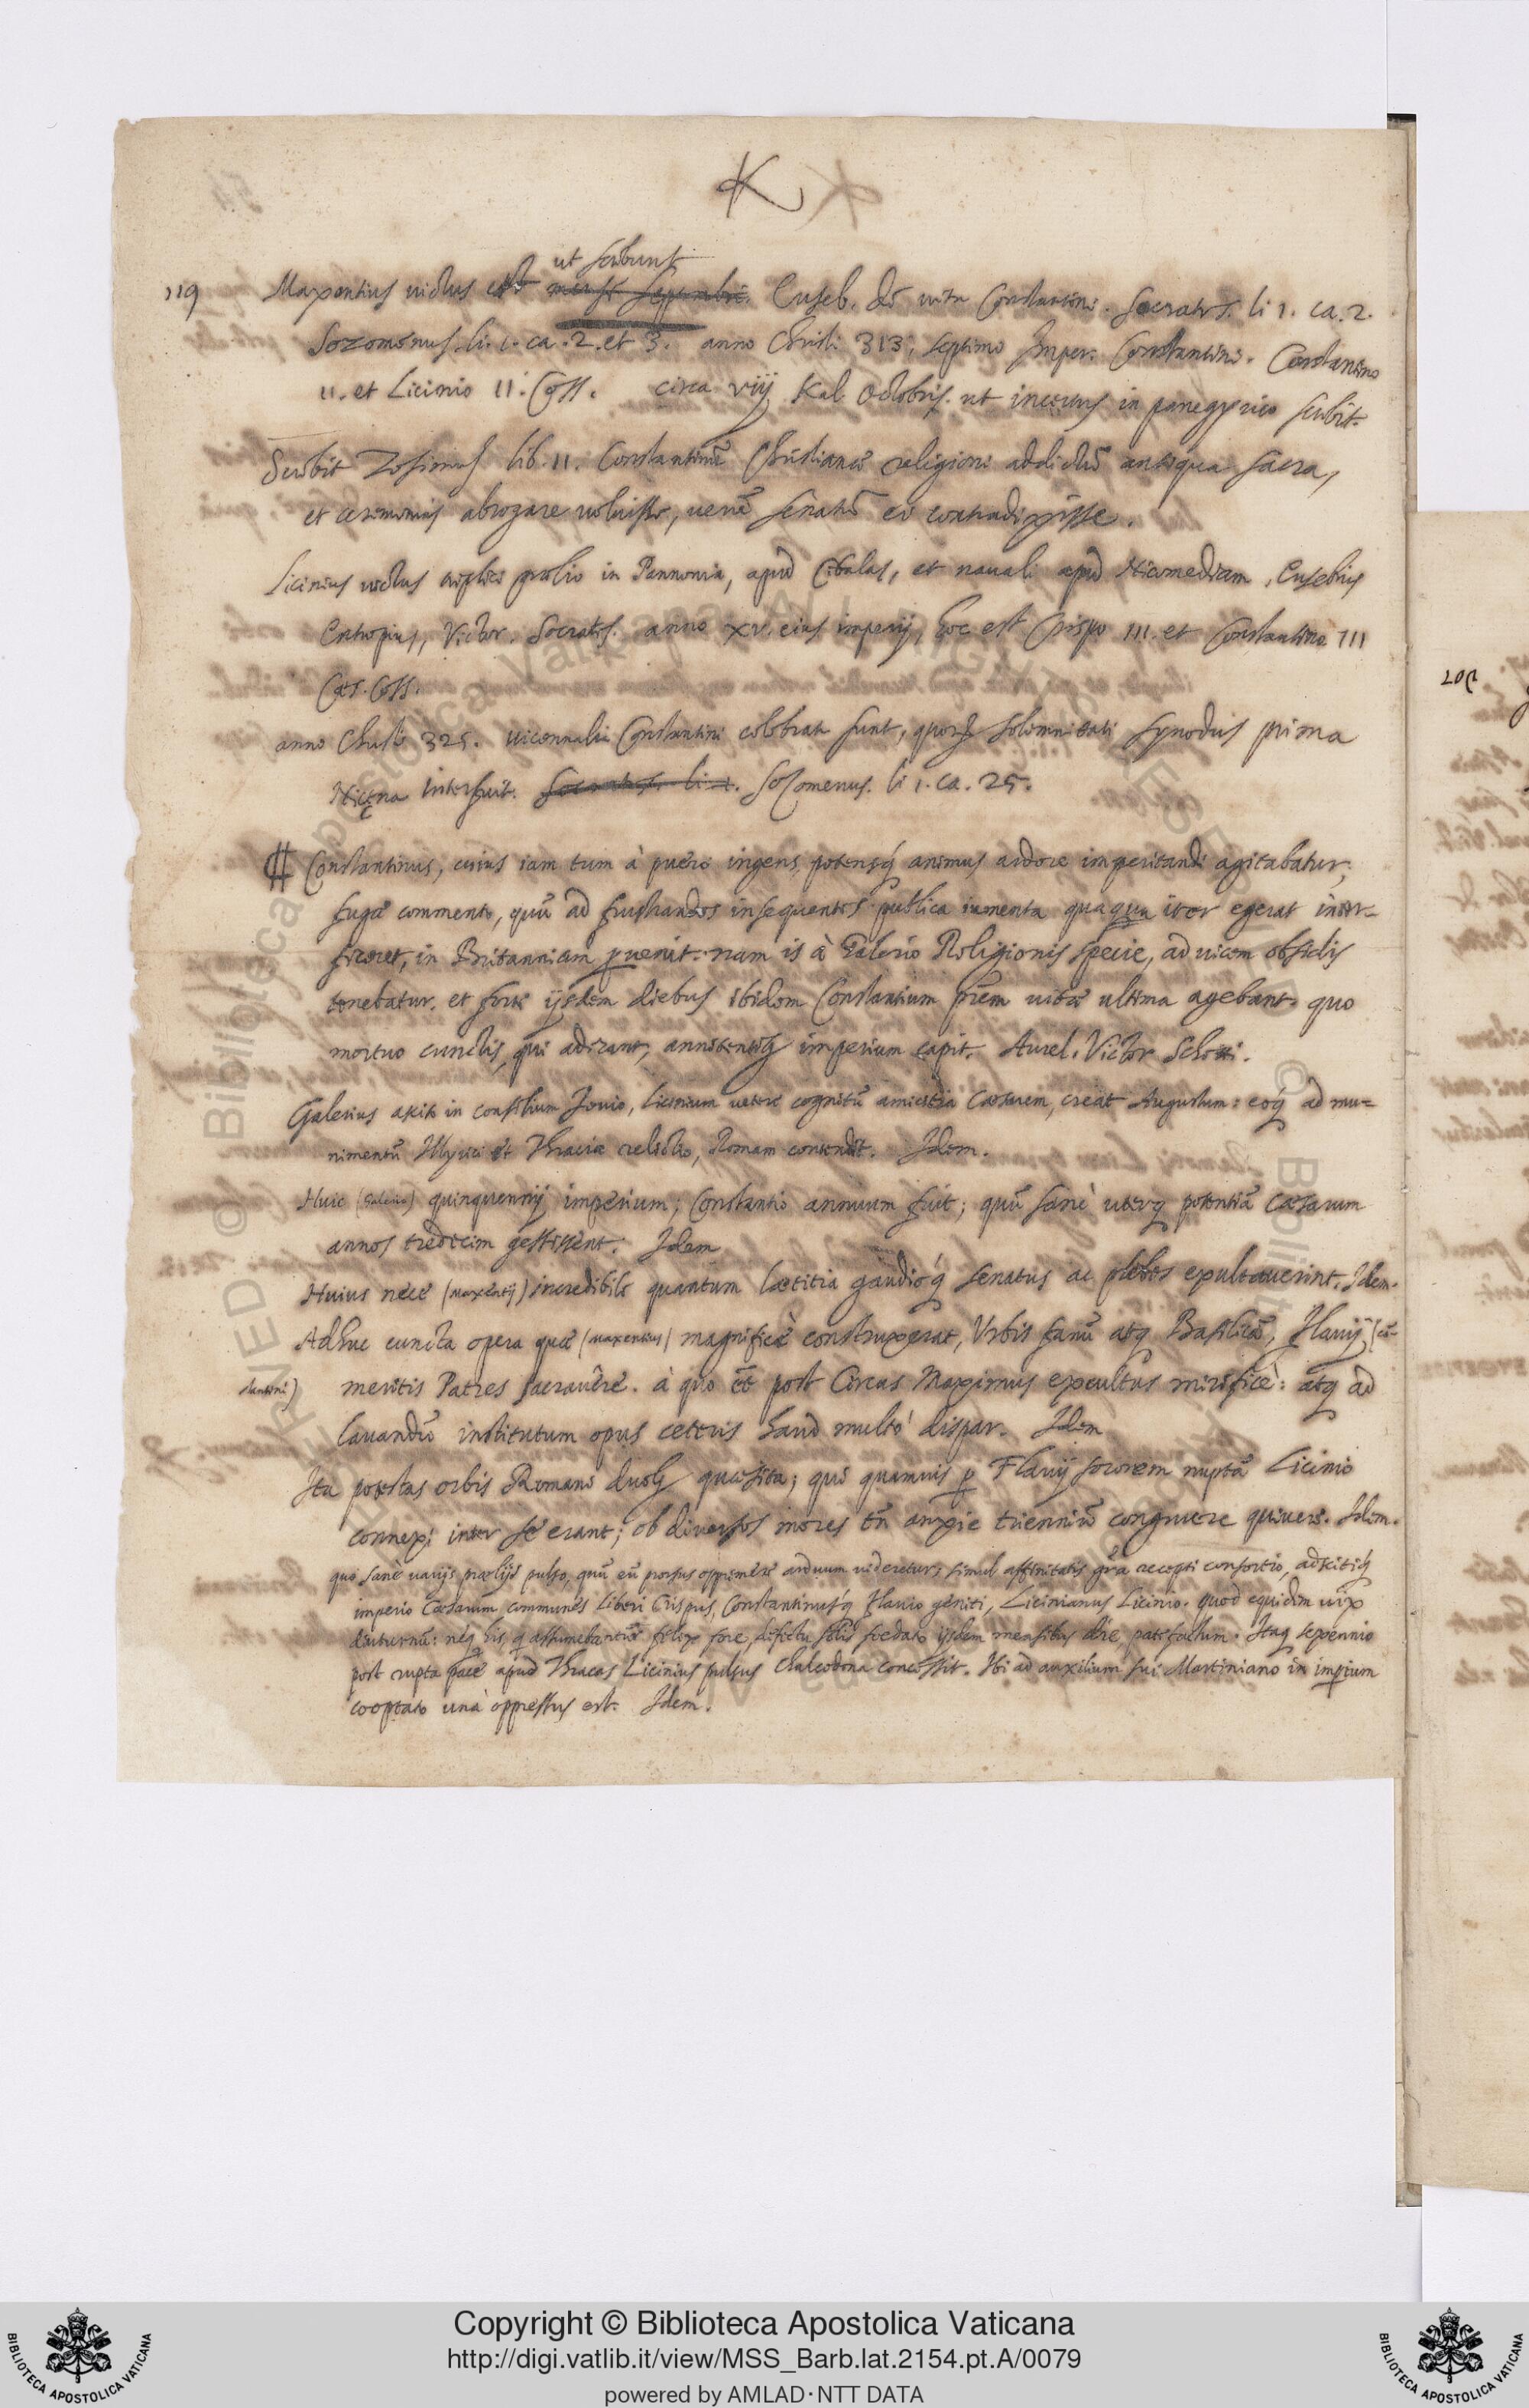 K
ut scribunt
119 Maxentius uictus est mense Septembri. Euseb. de uita Constantini. Socrates. li 1. ca. 2.
Sozomenus. li. 1. ca. 2. et 3. anno Christi 313, septimo Imper. Constantini. Constantino
II. et Licinio II. Coss. circa viij Kal Octobris. ut incertus in panegyrico scribit.
Scribit Zosimus lib. II. Constantinũ Christianæ religioni addictũ antiqua sacra,
et ceremonias abrogare uoluisse, uerũ senatũ ei contradixisse.
Licinius uictus triplici prælio in Pannonia, apud Cibalas, et nauali apud Nicomediam, Eusebius
Eutropius, Victor. Socrates. anno xv. eius imperij, hoc est Crispo III. et Constantino III
Cæs. Coss.
anno Christi 325. uicennalia Constantini celebrata sunt, quorũ solemnitati synodus prima
Nicęna interfuit. Socrates li 1. Sozomenus. li 1. ca. 25.
Constantinus, cuius iam tum à puero ingens, potensq́ animus ardore imperitandi agitabatur;
fugæ commento, quũ ad frustrandos insequentes publica iumenta quaqua iter egerat inter-
ficeret, in Britanniam ꝑuenit. nam is à Galerio Religionis specie, ad uicem obsidis
tenebatur. et forte ijsdem diebus ibidem Constantium p̃rem uitæ ultima agebant. quo
mortuo cunctis, qui aderant, annitentibꝫ imperium capit. Aurel. Victor Schotti.
Galerius ascito in consilium Jouio, Licinium uetere cognitũ amicitia Cæsarem, creat Augustum: eoq́ ad mu=
nimentũ Illyrici et Thraciæ relicto, Romam contendit. Idem.
Huic (Galerio) quinquennij imperium; Constantio annuum fuit; quũ sanè uterq potentiã Cæsarum
annos tredecim gestissent. Idem
Huius nece (Maxẽtij) incredibile quantum lætitia gaudioq́ senatus ac plebes exultauerint. Idem.
Adhuc cuncta opera quæ (Maxentius) magnificè construxerat, Vrbis fanũ atq Basilicã, Flauij (Cõ-
stantini) meritis Patres sacrauêre. à quo et̃ post Circus Maximus excultus mirificè: atq ad
lauandũ institutum opus ceteris haud multo dispar. Idem
Ita potestas orbis Romani duobꝫ quæsita; qui quamuis ꝑ Flauij sororem nuptã Licinio
connexi inter se erant; ob diuersos mores tñ anxie trienniũ congruere quiuere. Idem.
quo sanè uarijs prælijs pulso, quũ eũ prorsus opprimere arduum uideretur, simul affinitatis gr̃a recepti consortio, adscitiq́
imperio Cæsarum communes liberi Crispus, Constantinusq́ Flauio geniti, Licinianus Licinio. quod equidem uix
diuturnũ: neq his, q assumebantur felix fore, defectu solis foedato ijsdem mensibus die, patefactum. Itaq sexennio
post rupta pace apud Thracas Licinius pulsus Chalcedona concessit. Ibi ad auxilium sui Martiniano in imꝑium
cooptato unà oppressus est. Idem.
107
Copyright © Biblioteca Apostolica Vaticana
http://digi.vatlib.it/view/MSS_Barb.lat.2154.pt.A/0079
powered by AMLAD·NTT DATA
BIBLIOTECA APOSTOLICA VATICANA
BIBLIOTECA APOSTOLICA VATICANA